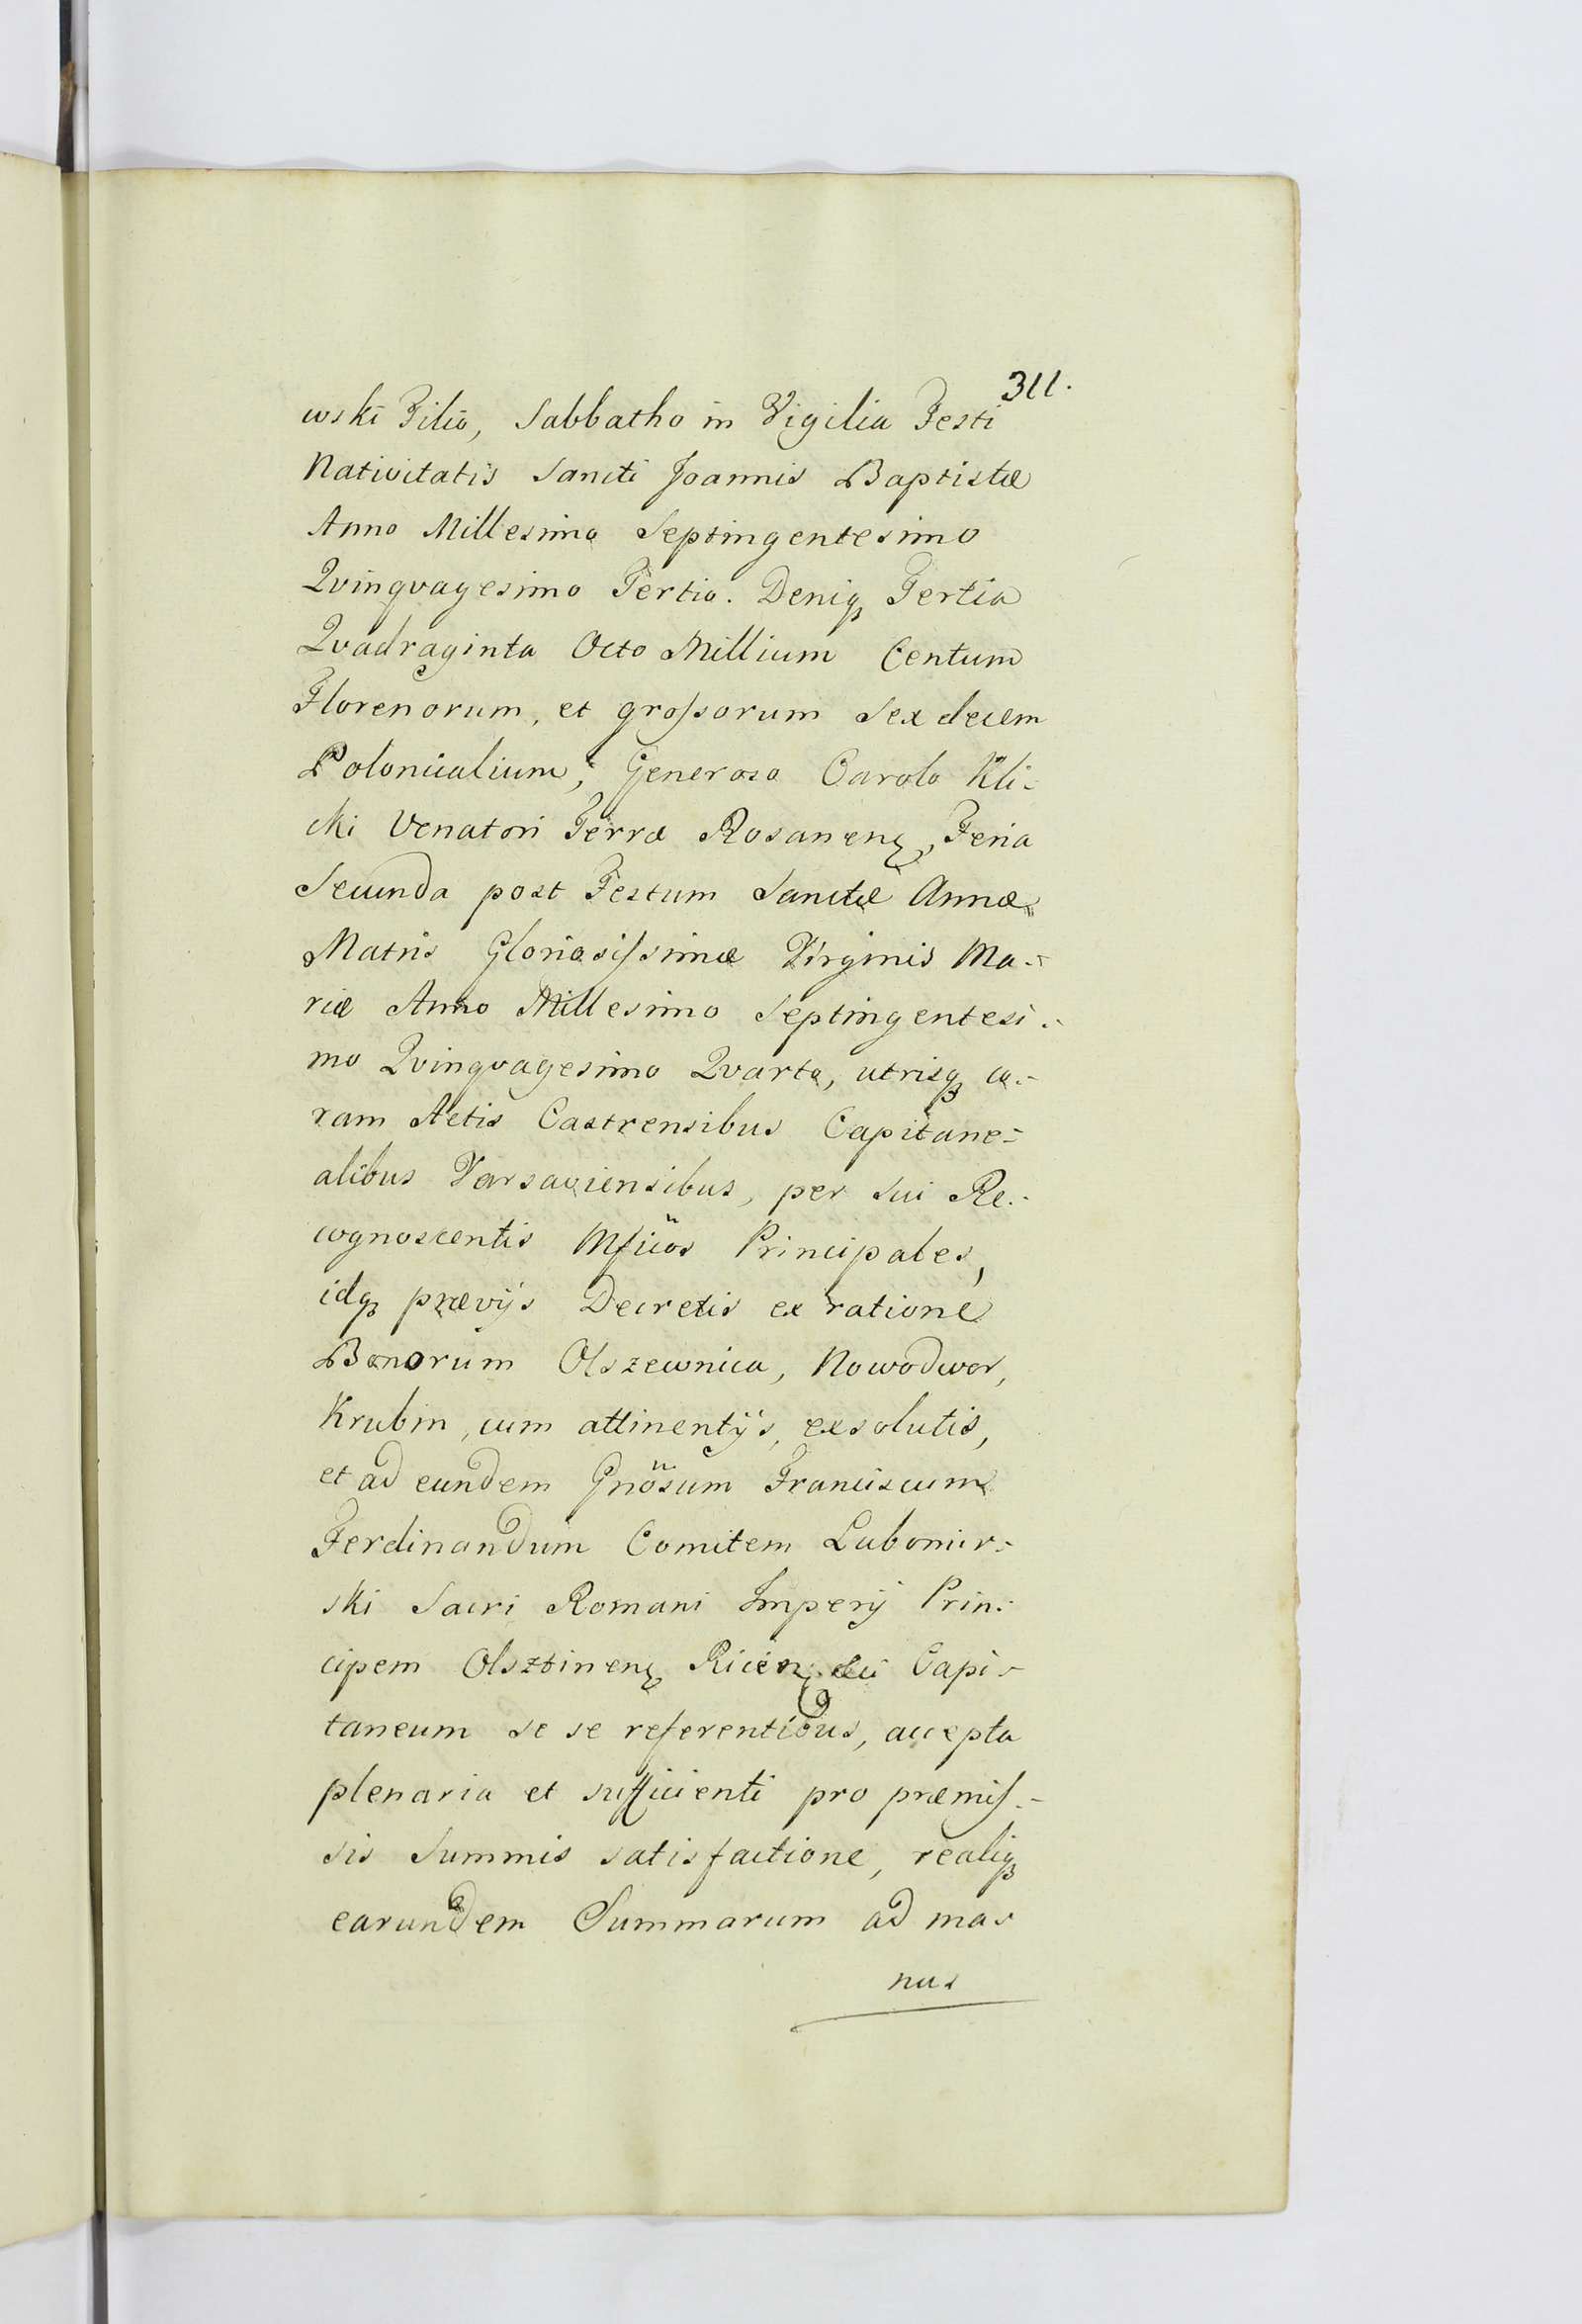 311.
wski Filio, Sabbatho in Vigilia Festi
Nativitatis Sancti Joannis Baptistæ
Anno Millesimo Septingentesimo
Qvinqvagesimo Tertio. Deniqꝫ Tertia
Qvadraginta Octo Millium Centum
Florenorum, et groſsorum Sexdecem
Polonicalium, Generoso Carolo Kli-
cki Venatori Terræ Rosanenꝫ, Feria
Secunda post Festum Sanctæ Annæ
Matris Gloriosiſsimæ Virginis Ma-
riæ Anno Millesimo Septingentesi-
mo Qvinqvagesimo Qvarto, utrisqꝫ co-
ram Actis Castrensibus Capitane-
alibus Varsaviensibus, per sui Re-
cognoscentis Mficos Principales,
idqꝫ prævijs Decretis ex ratione
Bonorum Olszewnica, Nowodwor,
Krubin, cum attinentijs, exsolutis,
et ad eundem Gnosum Franciscum
Ferdinandum Comitem Lubomir-
ski Sacri Romani Imperij Prin-
cipem Olsztinenꝫ Ricenꝫ Capi-
taneum se se referentibus, accepta
plenaria et sufficienti pro præmiſ-
sis Summis satisfactione, realiqꝫ
earundem Summarum ad ma-
nus